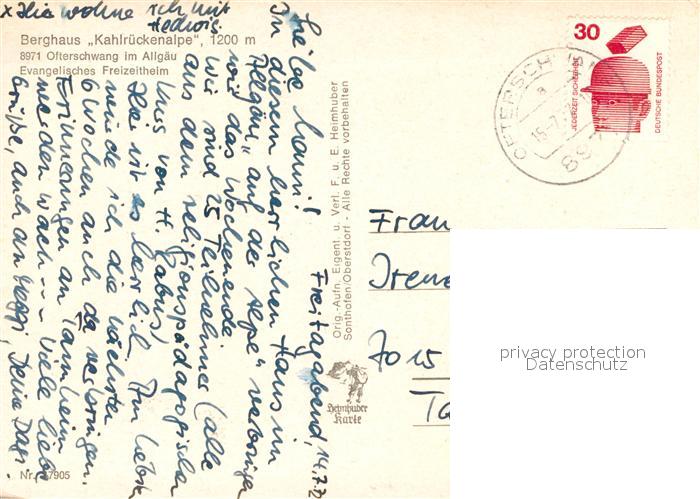 x Hie wohne ich mit
Hedwig.
Berghaus „Kahlrückenalpe", 1200 m
8971 Ofterschwang im Allgäu
Evangelisches Freizeitheim
Freitagabend, 14.7.
Liebe
In diesem herrlichen Haus im
Allgäu „auf der Alpe" verbringen
wir das Wochenende.
Wir sind 25 Teilnehmer (alle
aus dem religionspädagogischen
Kurs von H. Gabus)
Hier ist es herrlich. Am liebsten
würde ich die nächsten
6 Wochen auch da verbringen.
Erinnerungen an Tannheim
werden wach --- Viele liebe
Grüße, auch an Deine
Nr. 67905
Orig.-Aufn. Eigent. u. Verl. F. u. E. Heimhuber
Sonthofen/Oberstdorf - Alle Rechte vorbehalten
Heimhuber
Karte
30
JEDERZEIT SICHERHEIT
DEUTSCHE BUNDESPOST
OFTERSCHWANG
a
15.7.
8971
Frau
Irene
7015
privacy protection
Datenschutz